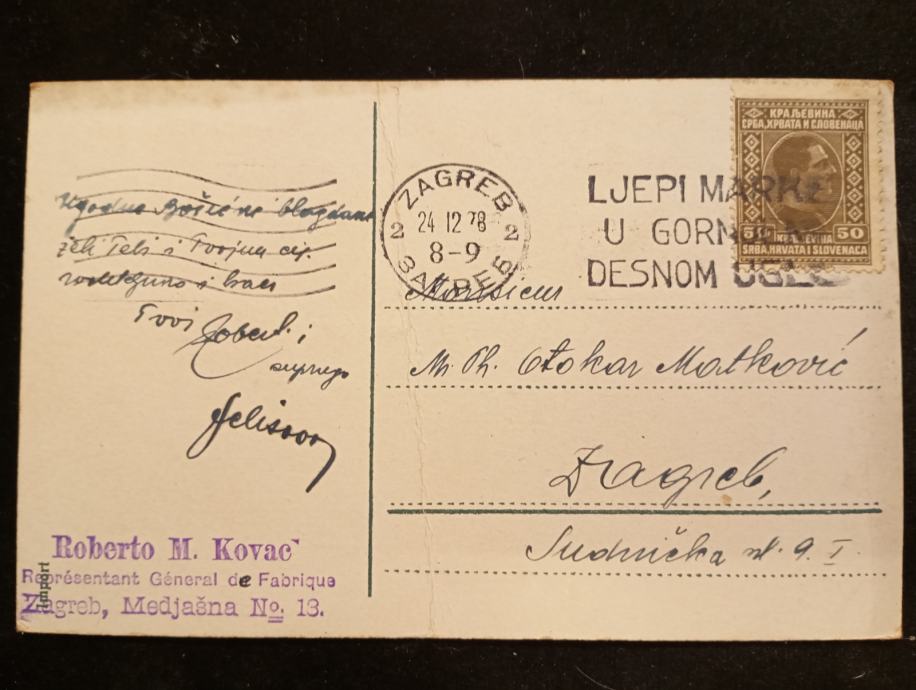 Ugodne Božićne blagdane
želi Tebi i Tvojim cij.
i
Tvoj Robert i
supruga
Roberto M. Kovač
Représentant Géneral de Fabrique
Zagreb, Medjašna No. 13.
Import
ZAGREB
2 24 12 28 2
8-9
ЗАГРЕБ
LJEPI MARKE
U GORN
DESNOM UGLU
КРАЉЕВИНА
СРБА, ХРВАТА И СЛОВЕНАЦА
50 KRALJEVINA 50
SRBA, HRVATA I SLOVENACA
Monsieur
M. Ph. Otokar Matković
Zagreb,
Sudnička ul. 9. I.